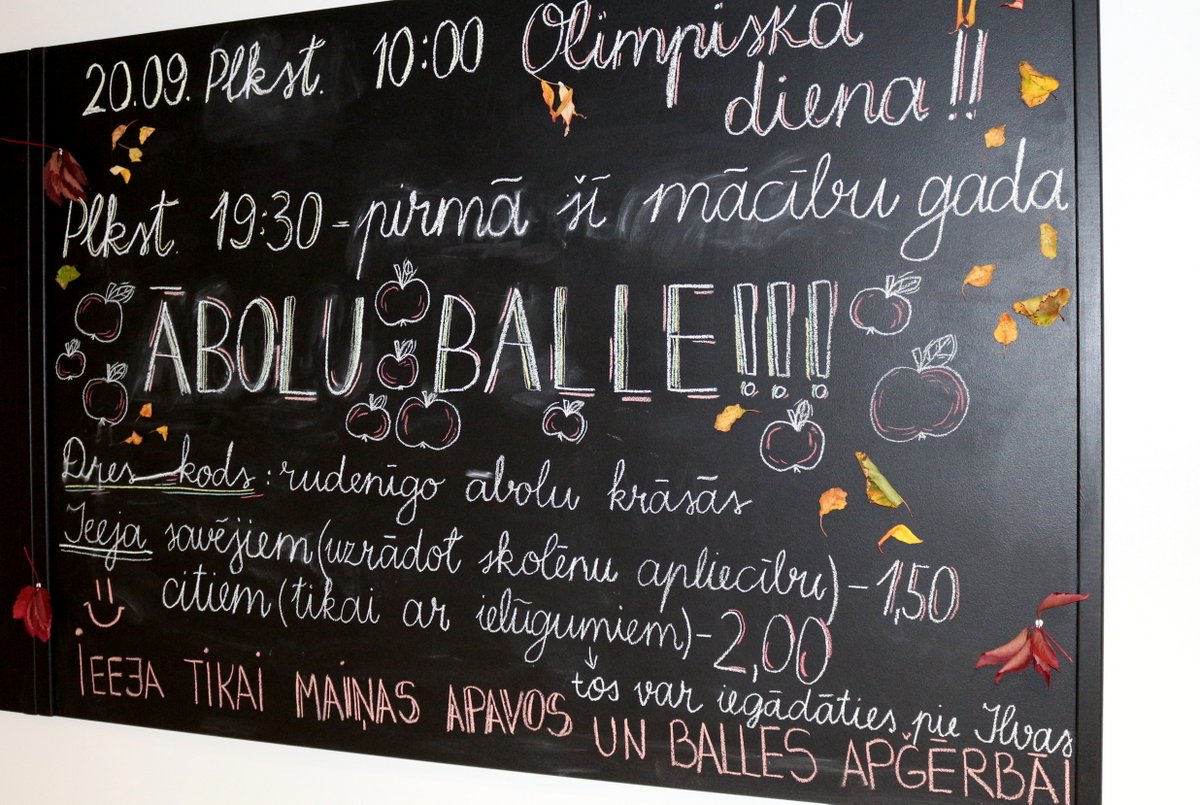 20.09. Plkst. 10:00 Olimpiska
diena!!
Plkst. 19:30 - pirmā šī mācību gada
ĀBOLU BALLE!!!
Dres kods: rudenīgo ābolu krāsās
Ieeja savējiem (uzrādot skolēnu apliecību) - 1,50
citiem (tikai ar ielūgumiem) - 2,00
tos var iegādāties pie Ilvas
IEEJA TIKAI MAIŅAS APAVOS UN BALLES APĢĒRBĀ!